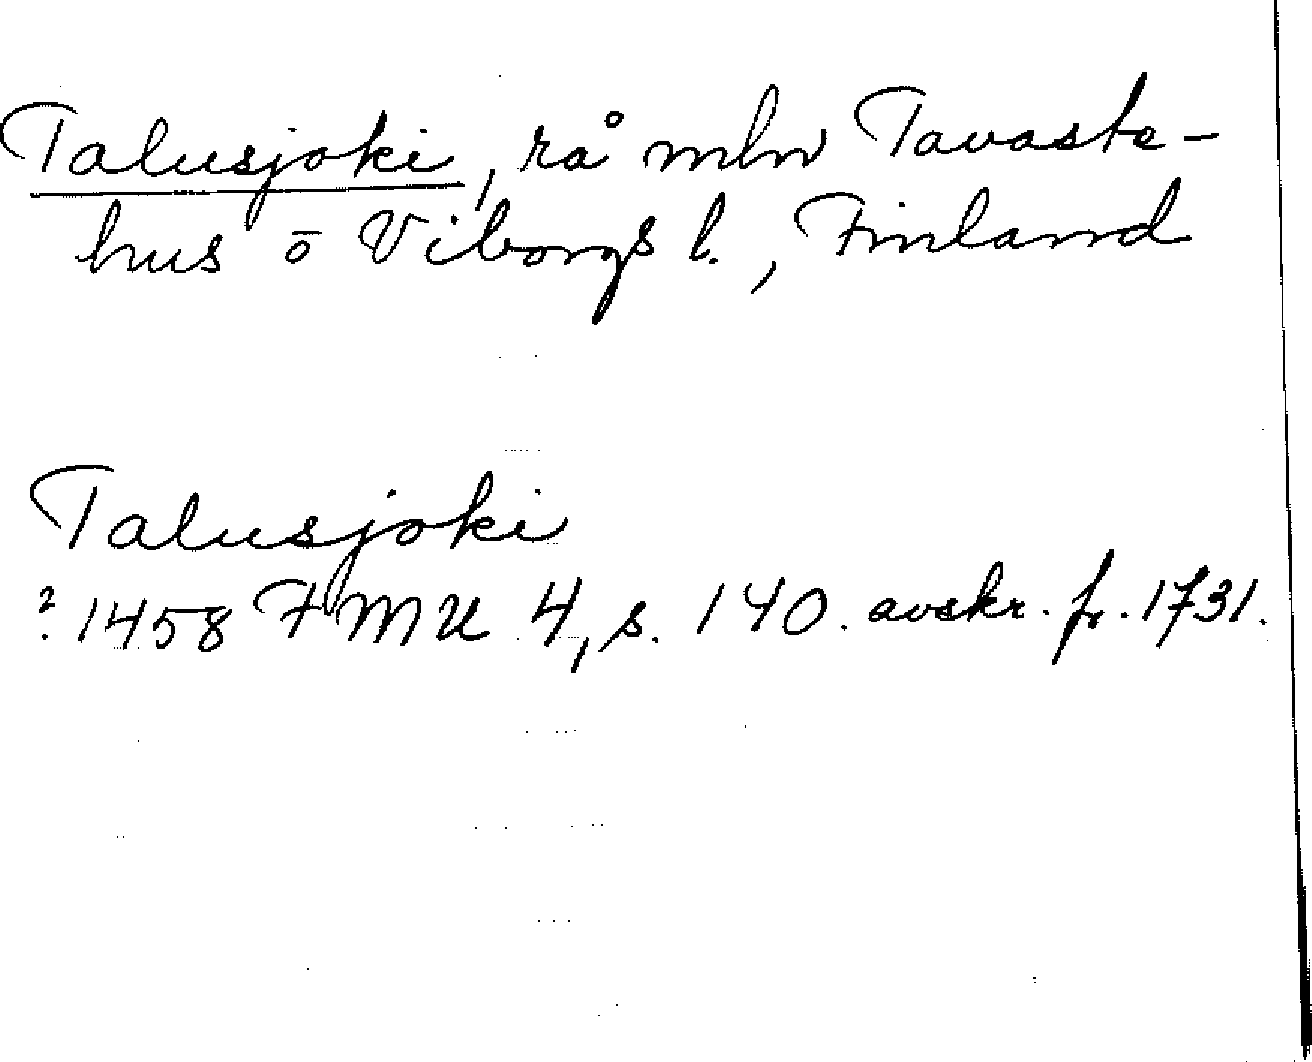 Talusjoki, rå mln Tavaste-
hus o Viborgs l., Finland
Talusjoki
? 1458 FMU 4, s. 140. avskr. fr. 1731.